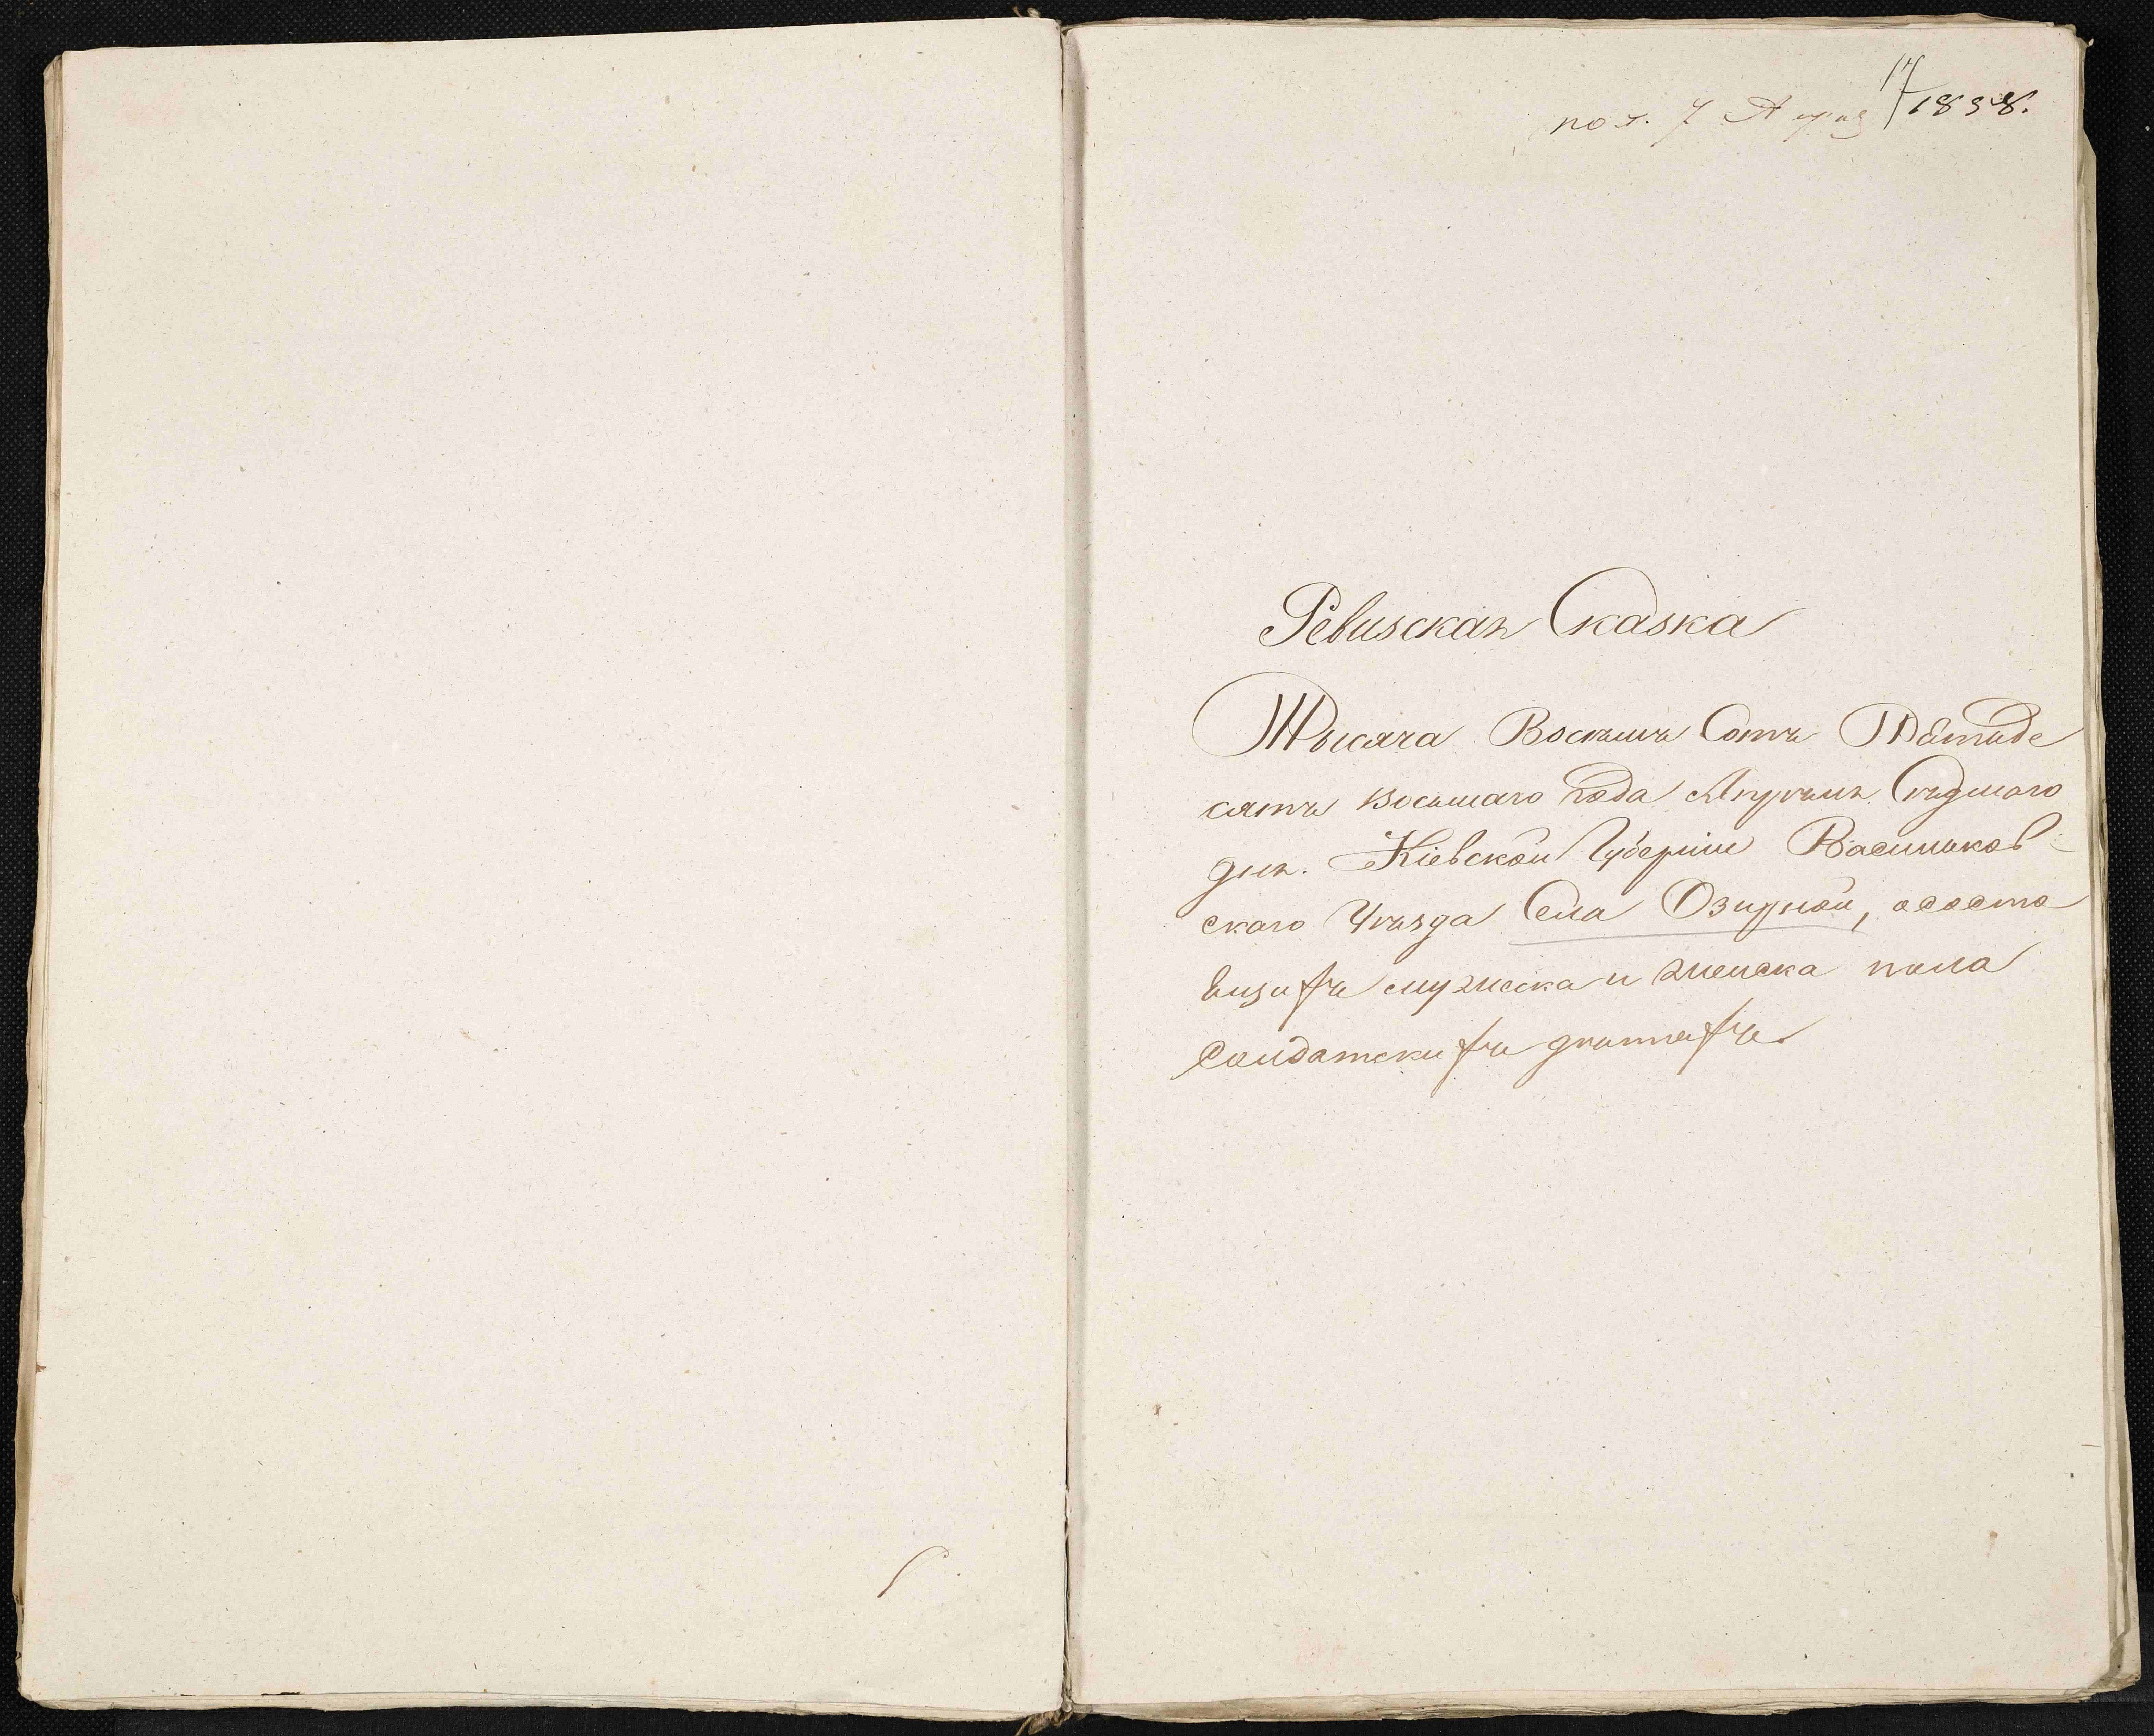 17
пол. 7 Апрля 1858.
Ревизская Сказка
Тысяча Восемъ Сотъ Пятьде
сятъ Восьмаго Года Апреля Седмого
дня. Кіевской Губерніи Васильков-
скаго Уезда Села Озирной, о состо
ящихъ мужеска и женска пола
Солдатскихъ детяхъ.